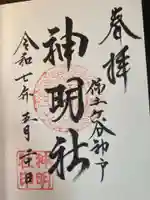 奉拝
保土ケ谷神戸
神明社
令和七年五月二十日